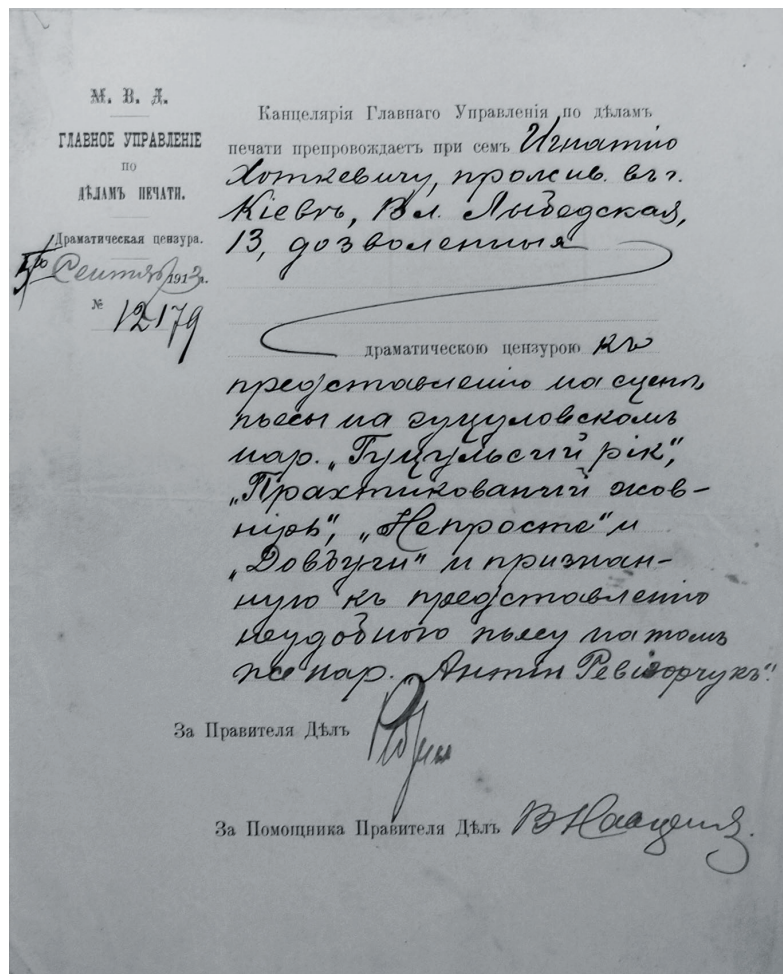 М. В. Д.
ГЛАВНОЕ УПРАВЛЕНІЕ
ПО
ДѢЛАМЪ ПЕЧАТИ.
Драматическая цензура.
Сентяб 1913 г.
№ 12179
Канцелярія Главнаго Управленія по дѣламъ
печати препровождаетъ при семъ Игнатію
Хоткевичу, прожив. въ г.
Кіевѣ, Вл. Лыбедская,
13, дозволенныя
драматическою цензурою къ
представленію на сценѣ
пьесы на гуцуловскомъ
нар. „Гуцульсчий рік",
„Прахтикований жов-
нірь", „Непросте" и
„Довбуш" и признан-
ную къ представленію
неудобного пьесу на томъ
же нар. „Антін Ревізорчукъ".
За Правителя Дѣлъ
За Помощника Правителя Дѣлъ